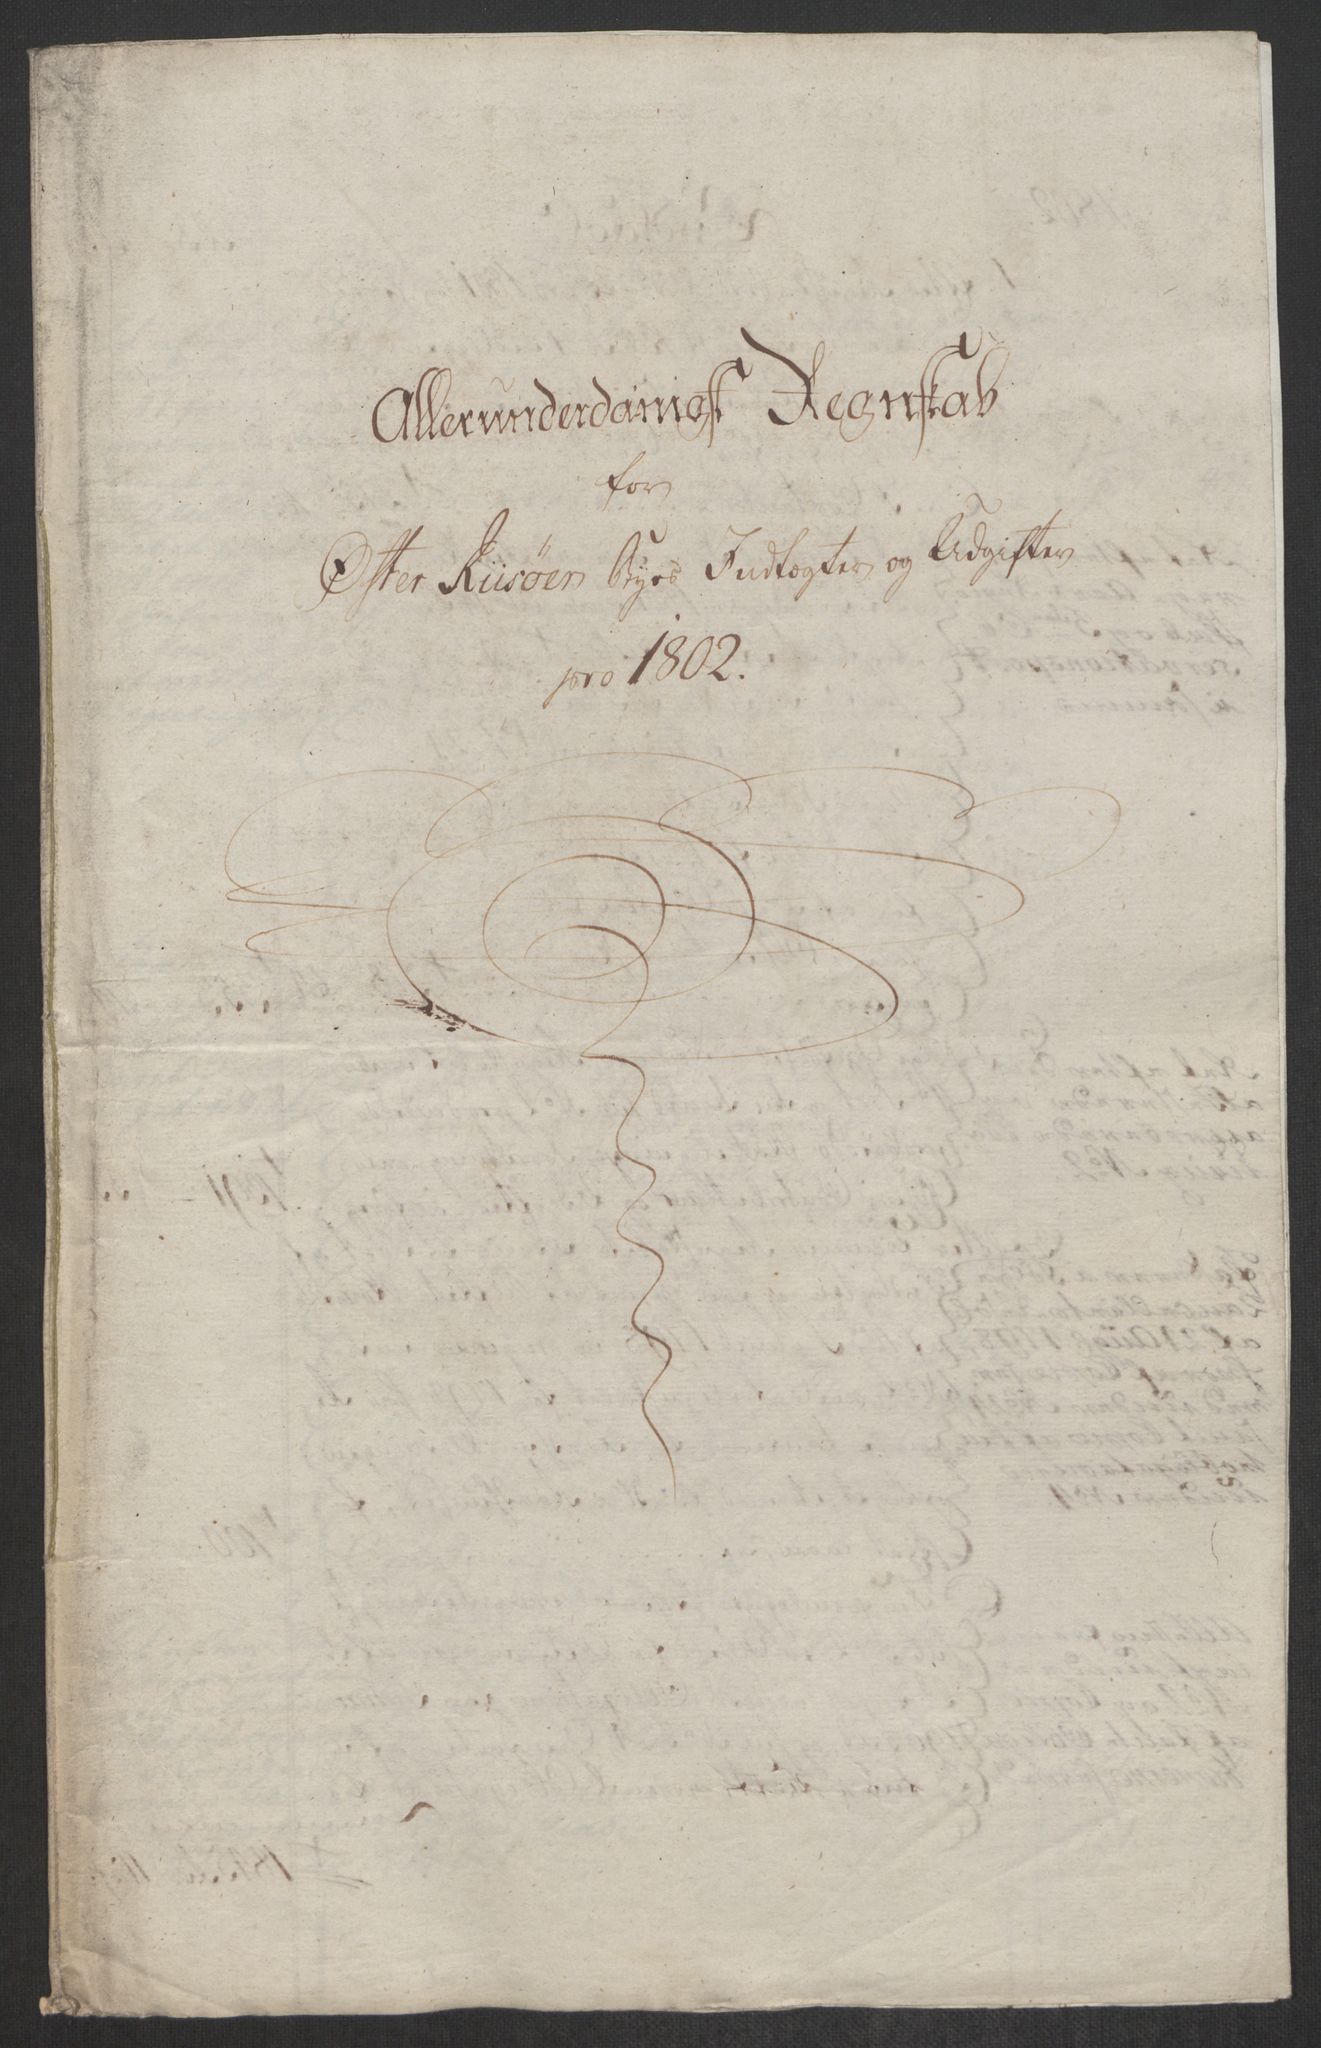 Allerunderdanigst Regnskab
for
Øster Riisøer Byes Indtægter og Udgifter
pro 1802.